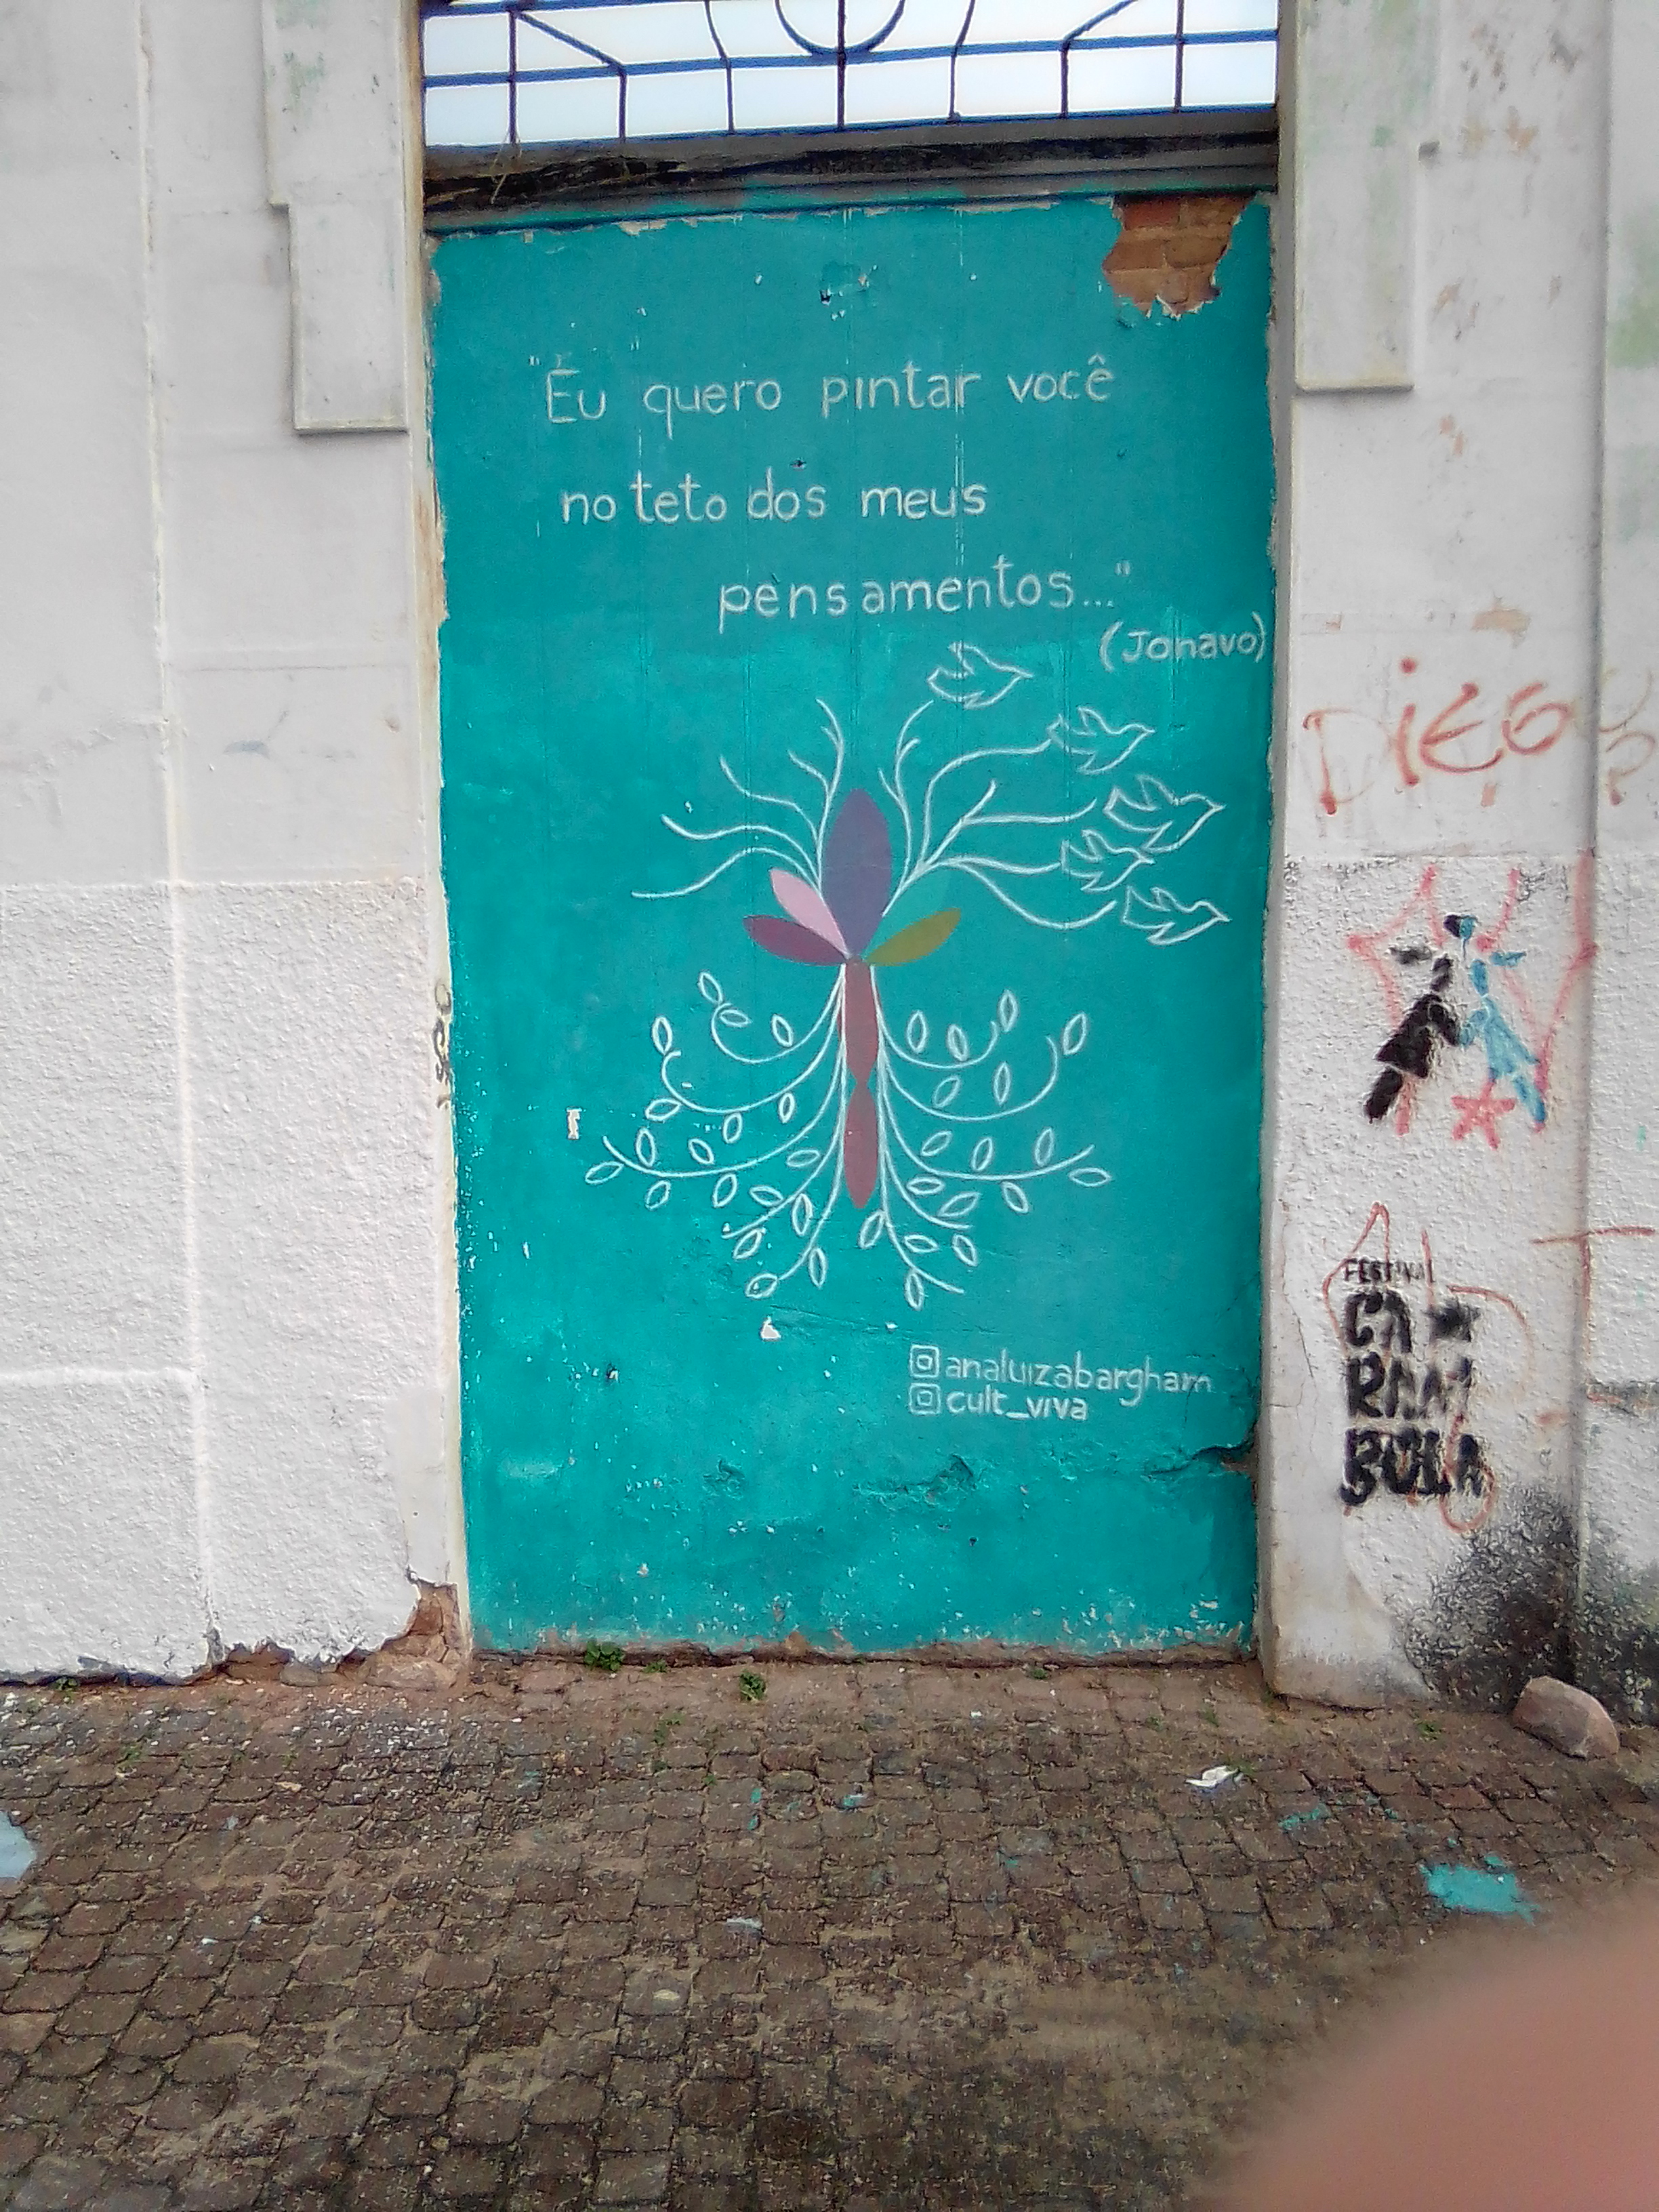 "Eu quero pintar você
no teto dos meus
pensamentos..."
(Jonavo)
analuizabargham
cult_viva
DiEGO
FESTIVAL
CA
RAM
BOLA